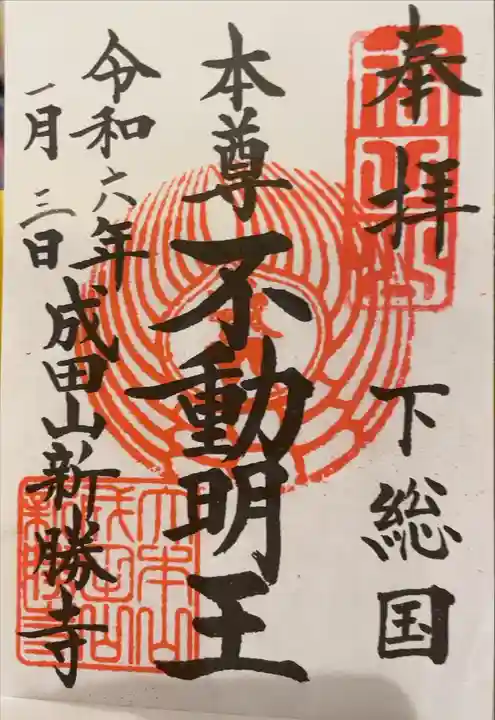 奉拝
下総国
本尊
不動明王
令和六年
一月三日
成田山新勝寺